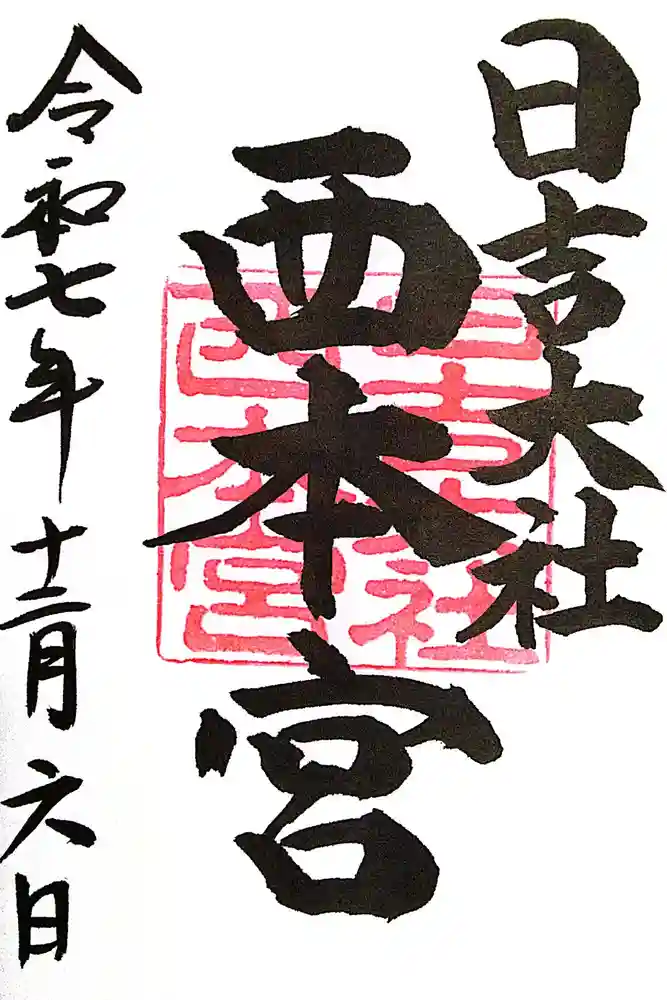 日吉大社
西本宮
日吉大社
西本宮
令和七年十二月六日